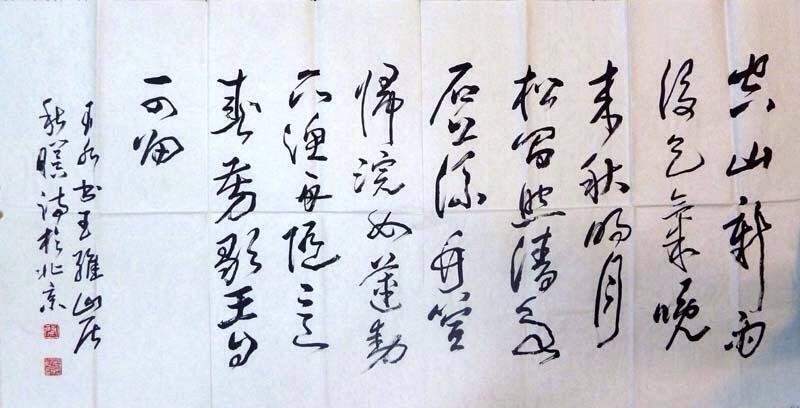 空山新雨
後天氣晚
来秋明月
松間照清泉
石上流竹喧
歸浣女蓮動
下漁舟隨意
春芳歇王自
可留
书王維山居
秋暝诗於北京